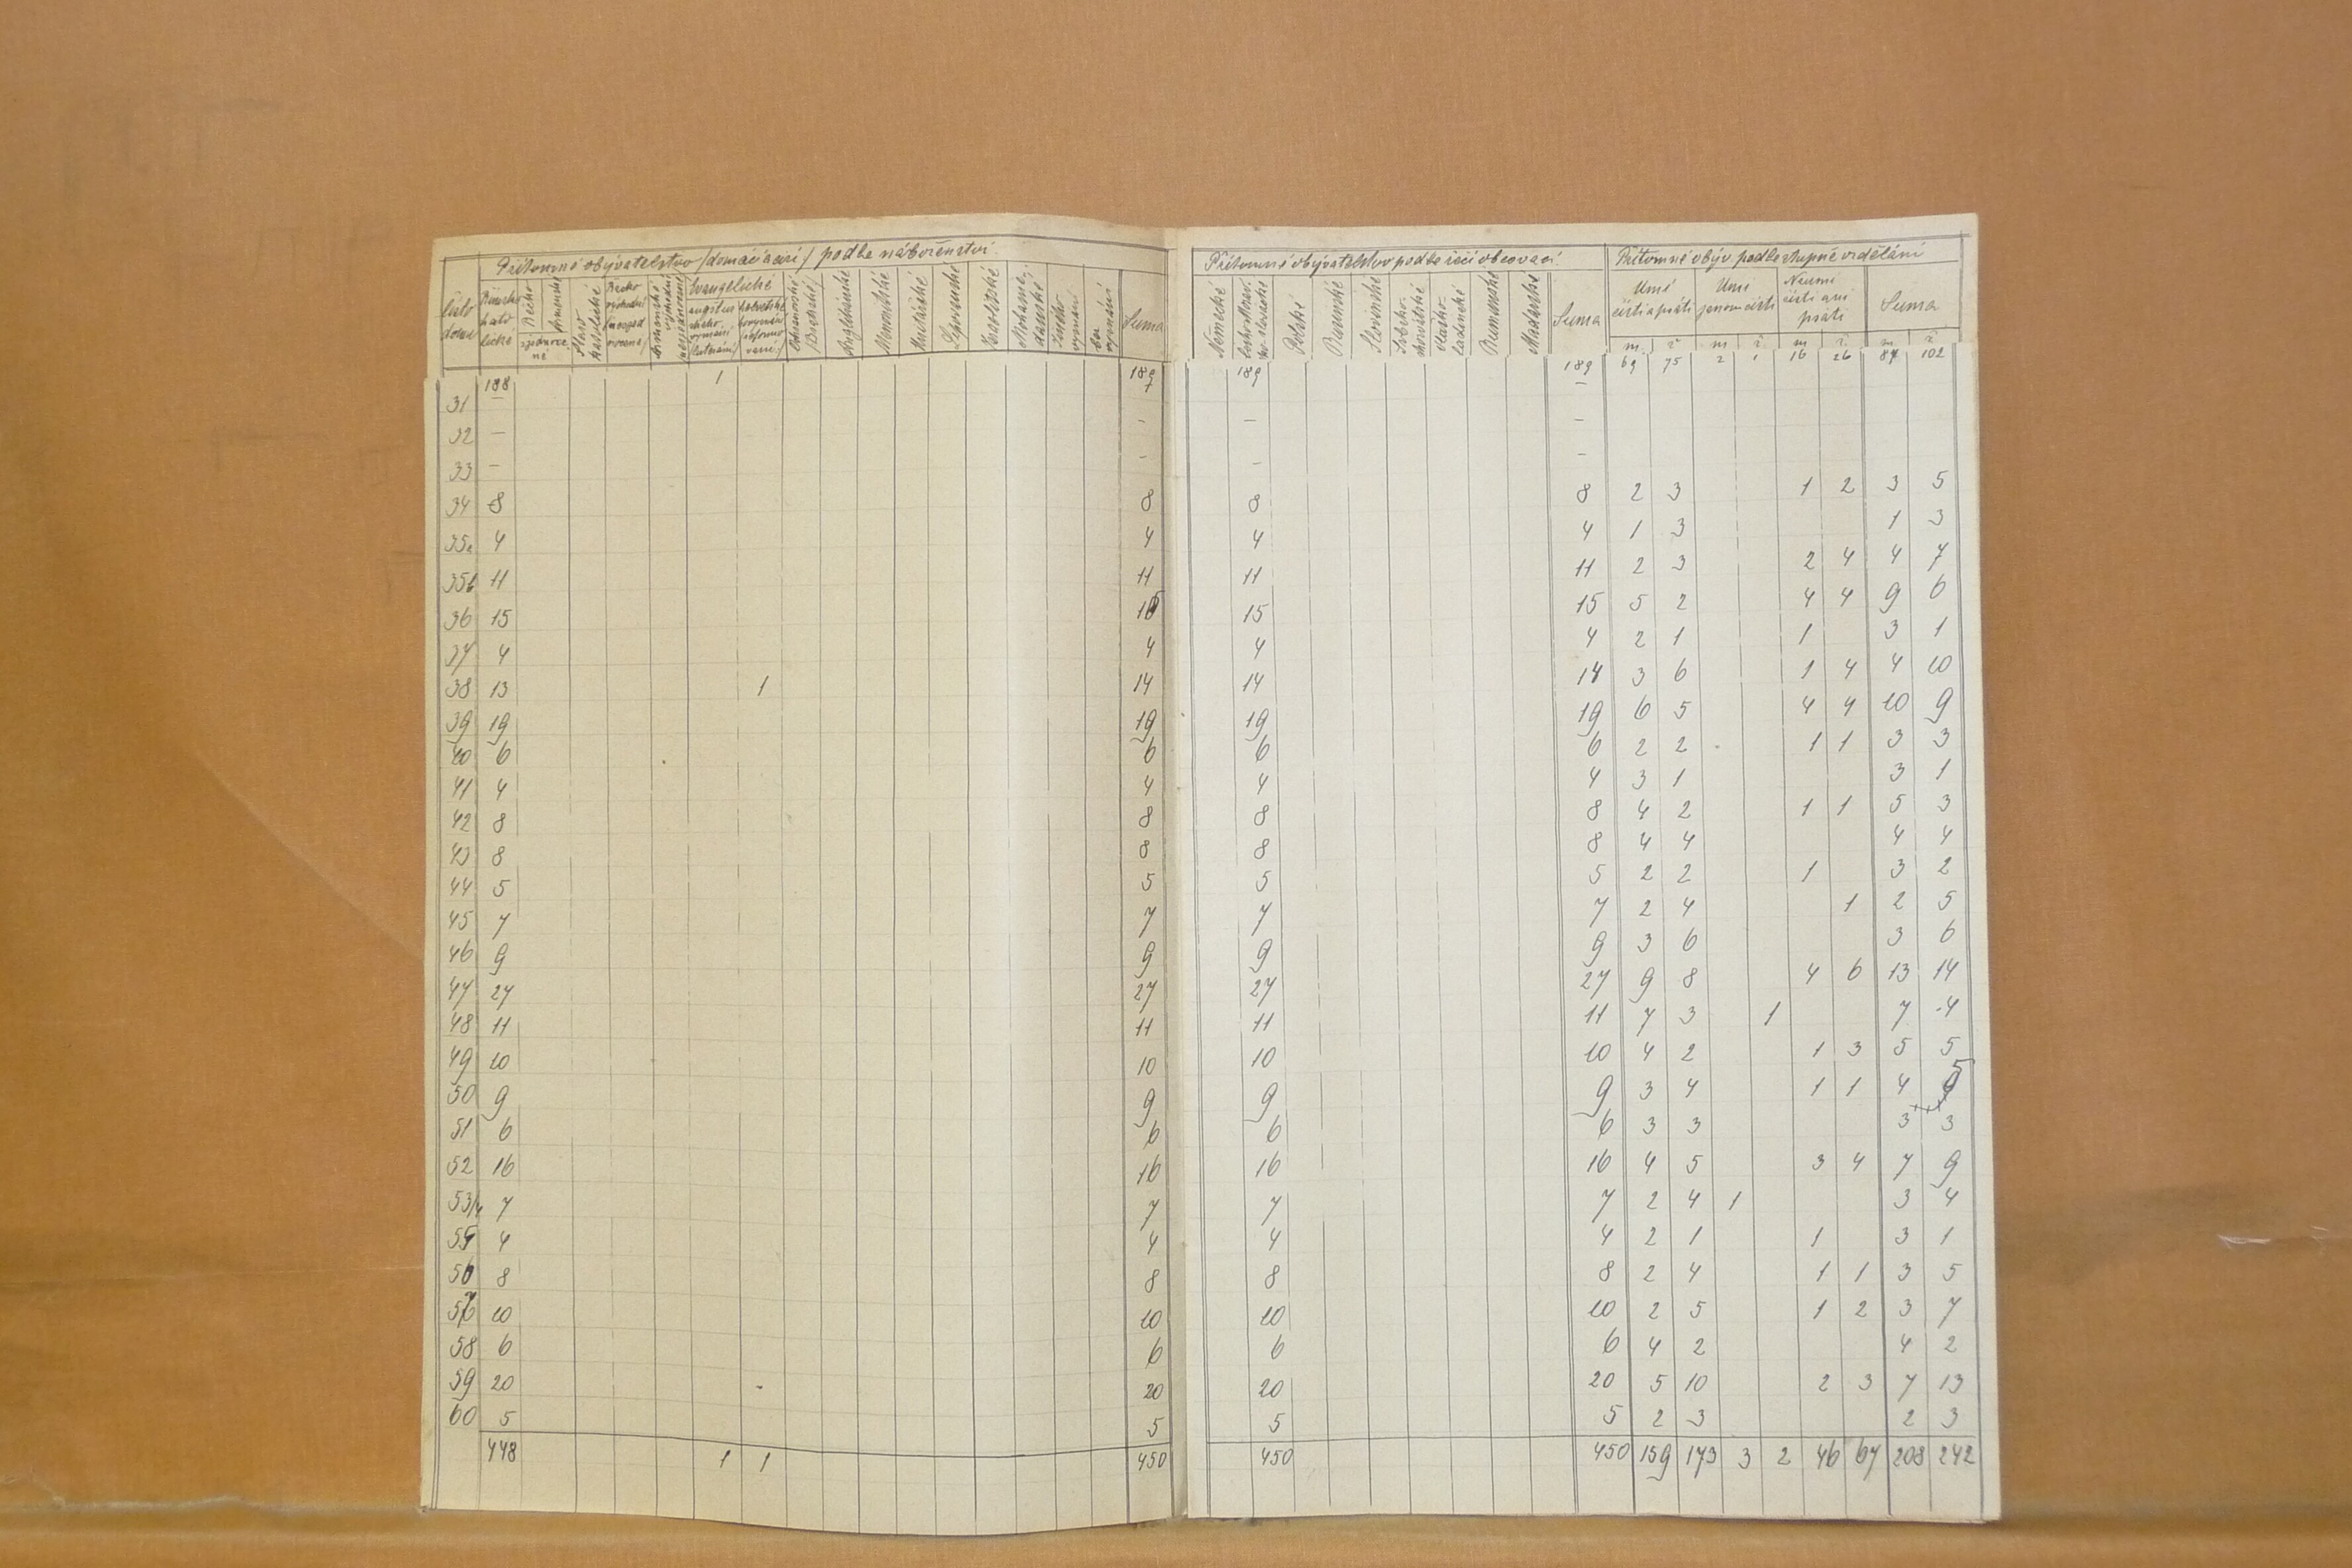 Přítomné obyvatelstvo /domácí a cizí/ podle náboženství.
Číslo domu
Římsko katolické
Řecko
Armensko
sjednocené
Staro katolické
Evangelické
Anglikánské
Menonitské
Unitářské
Lipovanské
Israelitské
Mohamedanské
Jiného vyznání
bez vyznání
Suma
188 1 189
31 —
32 — -
33 - -
34 8 8
35a 4 4
35b 11 11
36 15 15
37 4 4
38 13 1 14
39 19 19
40 6 6
41 4 4
42 8 8
43 8 8
44 5 5
45 7 7
46 9 9
47 27 27
48 11 11
49 10 10
50 9 9
51 6 6
52 16 16
53/4 7 7
55 4 4
56 8 8
57 10 10
58 6 6
59 20 20
60 5 5
448 1 1 450
Přítomné obyvatelstvo podle řeči obcovací.
Přítomné obyv. podle stupně vzdělání
Německé
Polské
Rusínské
Slovinské
Srbsko-chorvátské
Vlasko-ladinské
Rumunské
Maďarské
Suma
Umí čísti a psáti
Umí jenom čísti
Neumí čísti ani psáti
Suma
m. ž. m ž. m ž. m. ž.
189 189 69 75 2 1 16 26 87 102
— —
- -
8 8 2 3 1 2 3 5
4 4 1 3 1 3
11 11 2 3 2 4 4 7
15 15 5 2 4 4 9 6
4 4 2 1 1 3 1
14 14 3 6 1 4 4 10
19 19 6 5 4 4 10 9
6 6 2 2 1 1 3 3
4 4 3 1 3 1
8 8 4 2 1 1 5 3
8 8 4 4 4 4
5 5 2 2 1 3 2
7 7 2 4 1 2 5
9 9 3 6 3 6
27 27 9 8 4 6 13 14
11 11 7 3 1 7 4
10 10 4 2 1 3 5 5
9 9 3 4 1 1 4 5
6 6 3 3 3 3
16 16 4 5 3 4 7 9
7 7 2 4 1 3 4
4 4 2 1 1 3 1
8 8 2 4 1 1 3 5
10 10 2 5 1 2 3 7
6 6 4 2 4 2
20 20 5 10 2 3 7 13
5 5 2 3 2 3
450 450 159 173 3 2 46 67 208 242